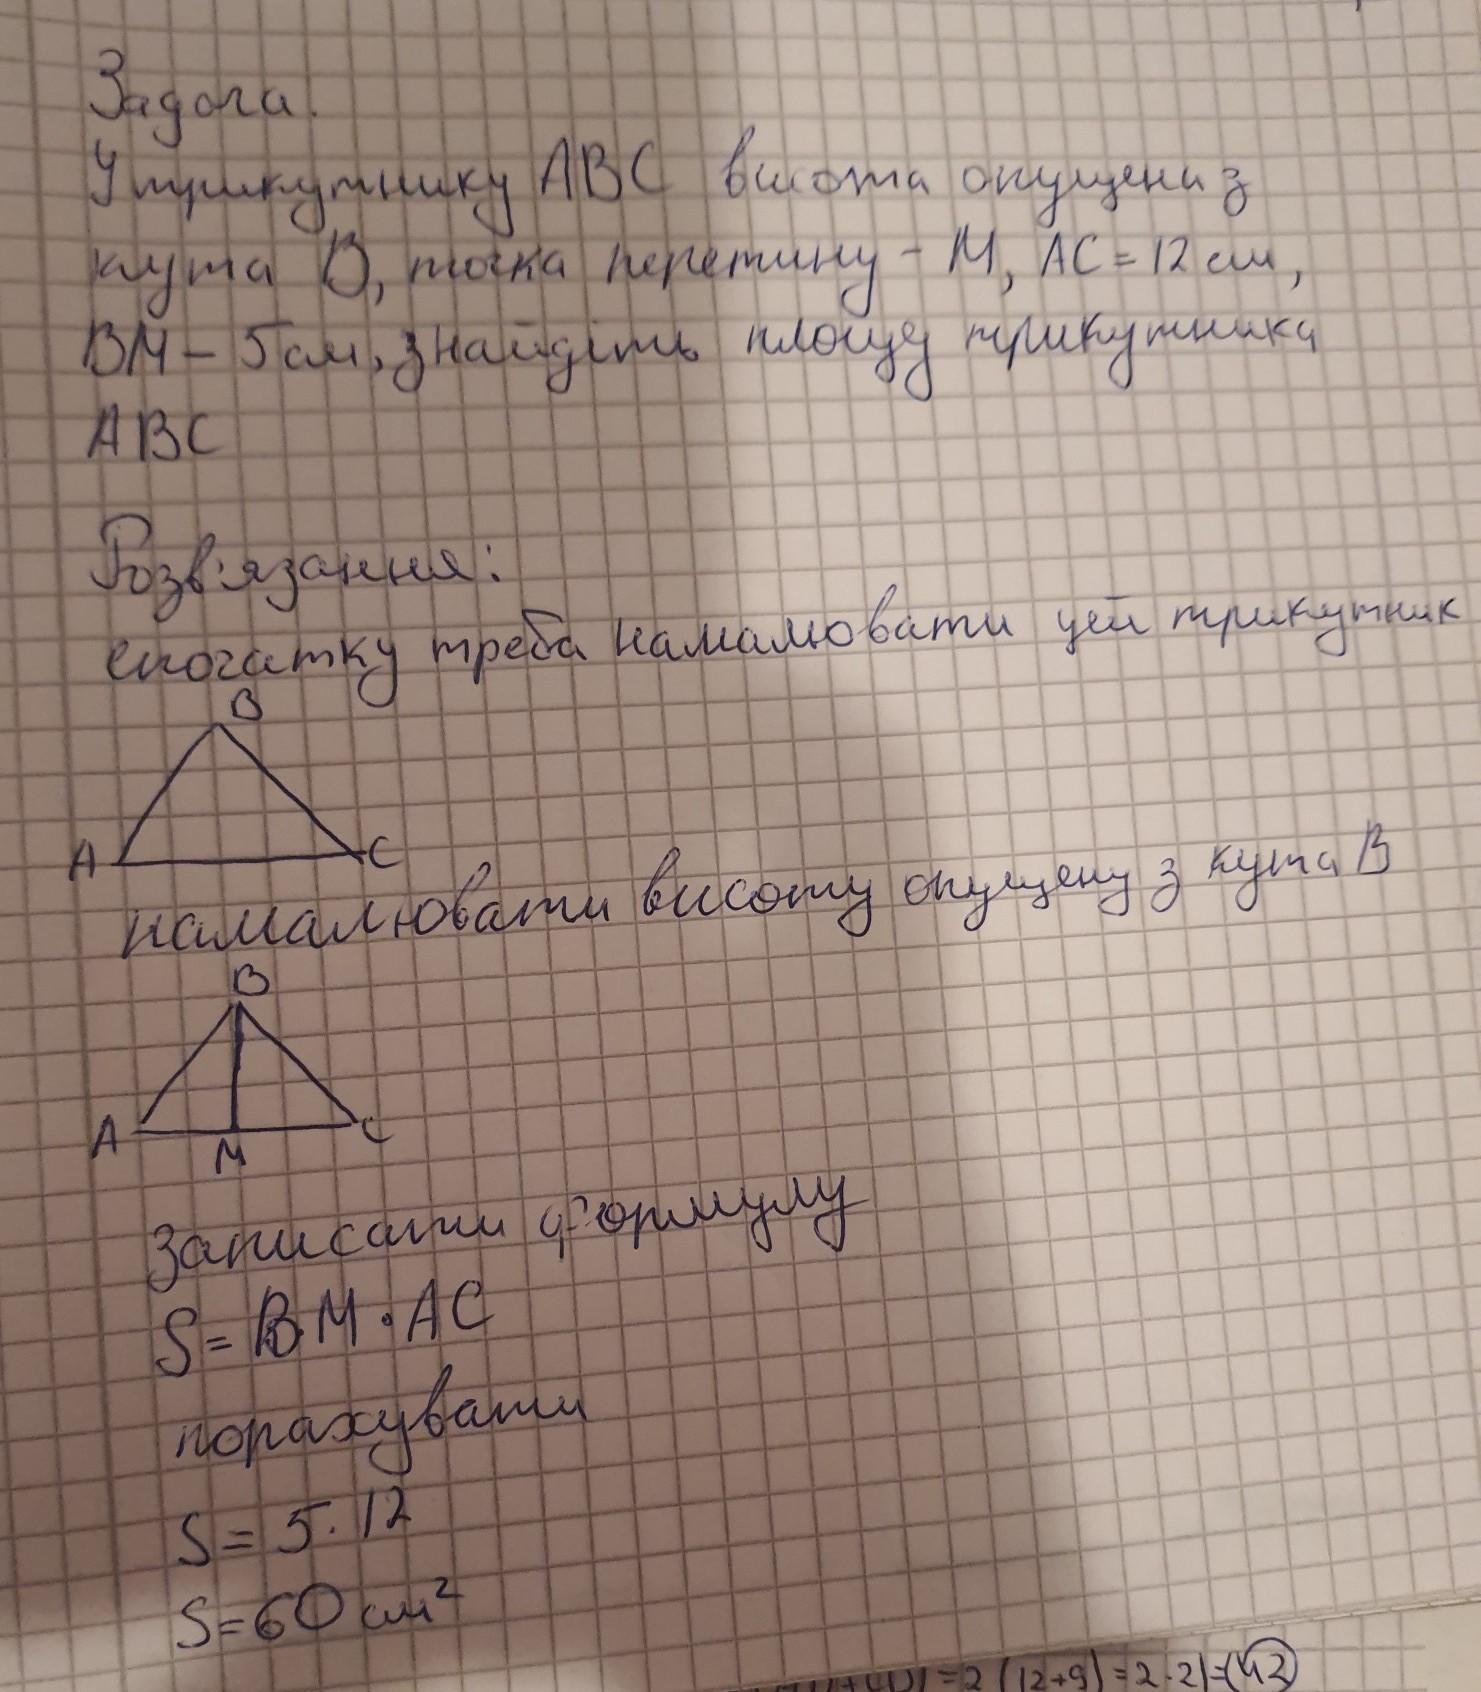 Задача.
У трикутнику ABC висота опущена з
кута B, точка перетину - M, AC = 12 см,
BM - 5 см, знайдіть площу трикутника
ABC
Розв'язання:
спочатку треба намалювати цей трикутник
B
A C
намалювати висоту опущену з кута B
B
A M C
записати формулу
S = BM · AC
порахувати
S = 5 · 12
S = 60 см²
= 2 (12+9) = 2 · 21 = 42